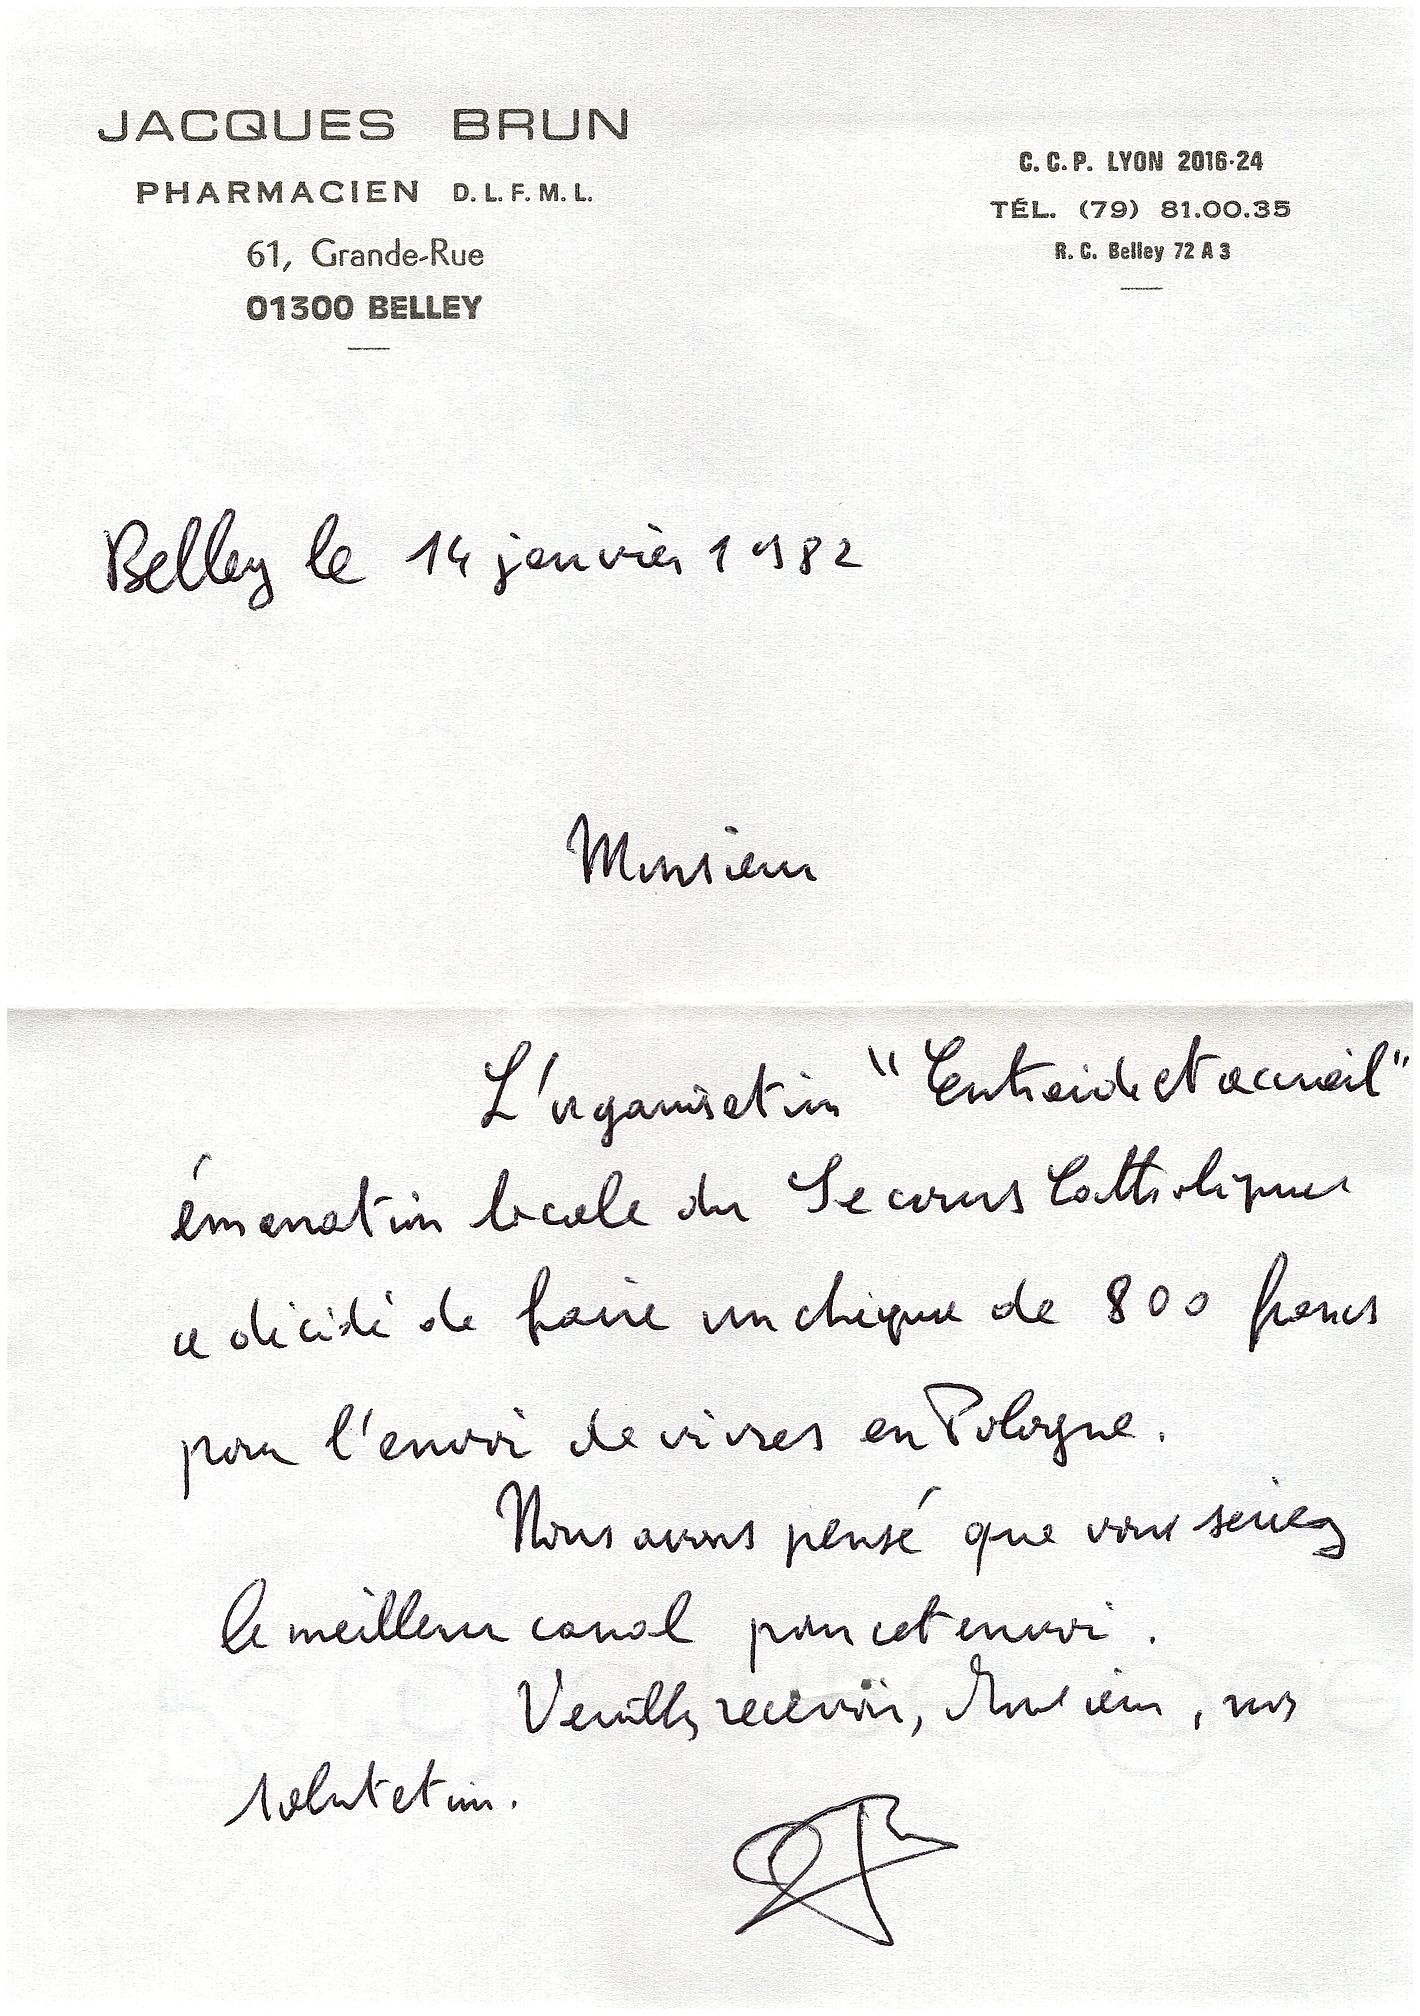 JACQUES BRUN
PHARMACIEN D. L. F. M. L.
61, Grande-Rue
01300 BELLEY
C. C. P. LYON 2016-24
TÉL. (79) 81.00.35
R. C. Belley 72 A 3
Belley le 14 janvier 1982
Monsieur
L'organisation "Entraide et accueil"
émanation locale du Secours Catholique
a décidé de faire un chèque de 800 francs
pour l'envoi de vivres en Pologne.
Nous avons pensé que vous seriez
le meilleur canal pour cet envoi.
Veuillez recevoir, Monsieur, nos
salutations.